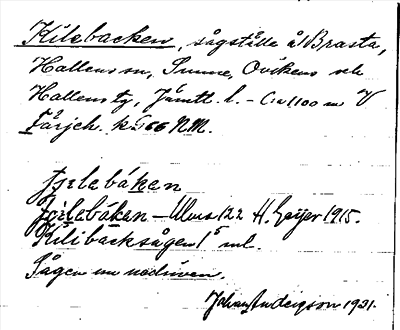 Kilebacken, sågställe å Brasta,
Hallens sn, Sunne, Ovikens och
Hallens tg, Jämtl. l. - Ca 1100 m V
Färjeh. k:a NM.
fjilebáken
fjilebáken - Ulvus 122 H. Geijer 1915.
Kilibacksågen 1 ml.
Sågen nu nedriven.
Johan Anderson 1931.